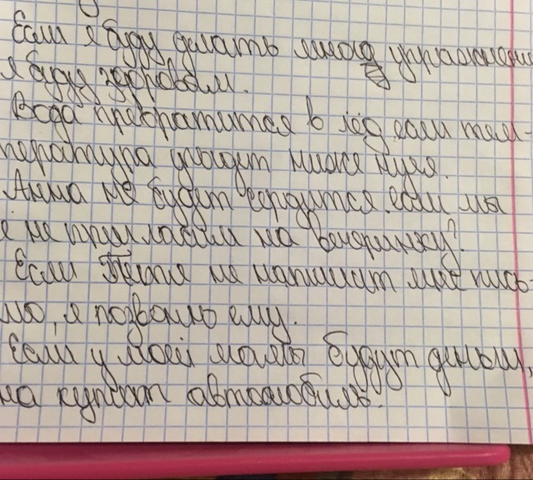 Если я буду делать много упражнени
я буду здоровым.
Вода превратится в лёд если тем-
пература упадут ниже нуля.
Анна не будут сердится если мы
ё не пригласим на вечеринку.
Если Петя не напишут мне пись-
мо, я позвоню ему.
Если у моей мамы будут деньги,
на купит автомобиль.